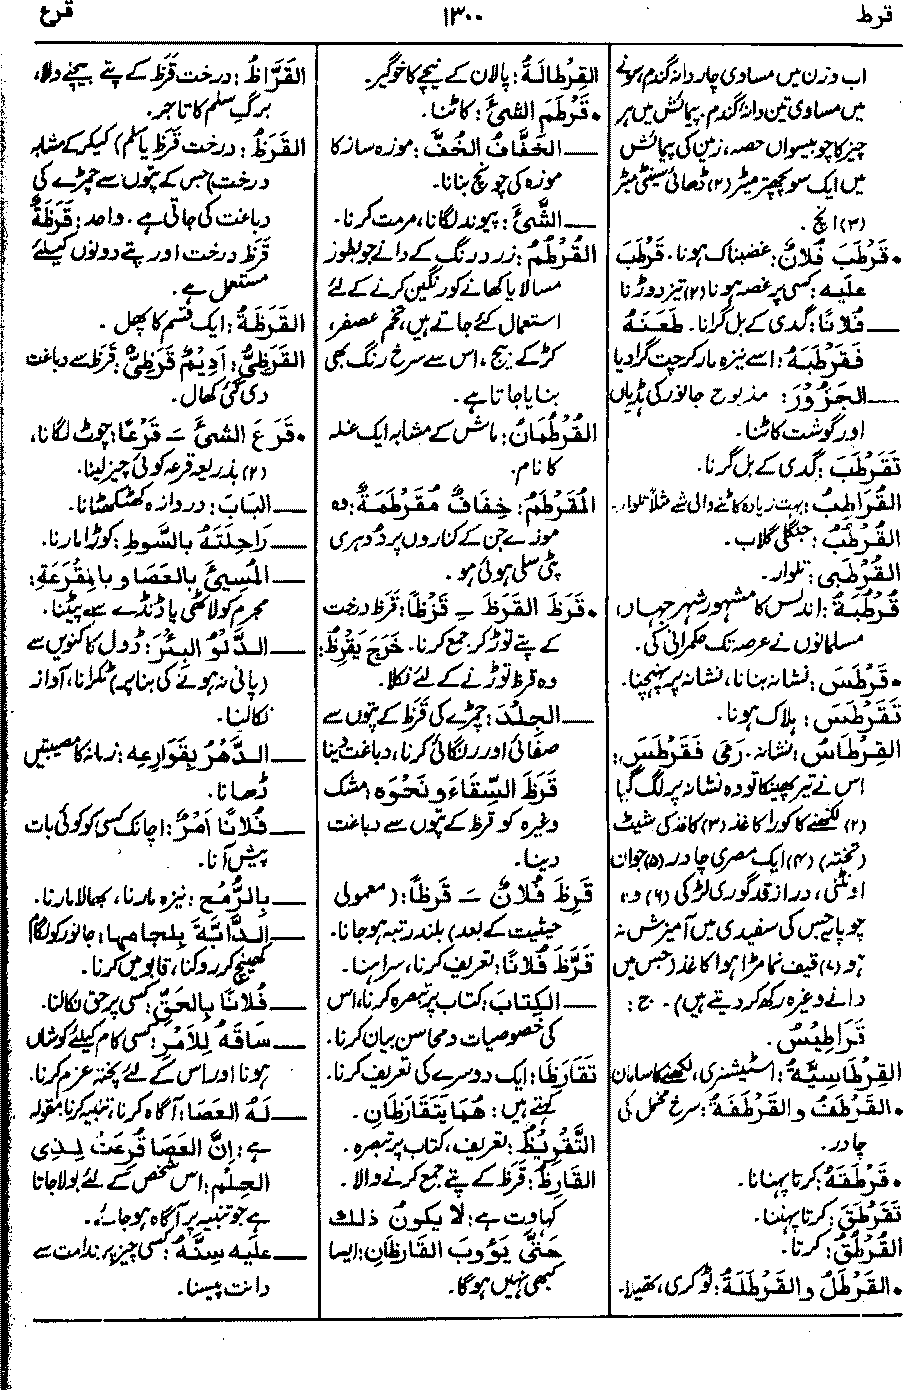 قرط
۱۳۰۰
قرع
اب وزن میں مساوی چار دانۂ گندم، سونے
میں مساوی تین دانۂ گندم۔ پیمائش میں ہر
چیز کا چوبیسواں حصہ، زمین کی پیمائش
میں ایک سو پچھتر میٹر (۲) ڈھائی سینٹی میٹر
(۳) انچ۔
• قَرْطَبَ فُلَانٌ: غضبناک ہونا۔ قَرْطَبَ
عليه: کسی پر غصہ ہونا (۲) تیز دوڑنا
— فُلَانًا: گدی کے بل گرانا۔ طَعَنَهُ
فَقَرْطَبَهُ: اسے نیزہ مار کر چت گرادیا
— الجَزُوْرَ: مذبوح جانور کی ہڈیاں
اور گوشت کاٹنا۔
تَقَرْطَبَ: گدی کے بل گرنا۔
القُرَاطِبُ: بہت زیادہ کاٹنے والی شے مثلاً تلوار۔
القُرْطُبُ: جنگلی گلاب۔
القُرْطُبَى: تلوار۔
قُرْطُبَةُ: اندلس کا مشہور شہر جہاں
مسلمانوں نے عرصہ تک حکمرانی کی۔
• قَرْطَسَ: نشانہ بنانا، نشانہ پر پہنچنا۔
تَقَرْطَسَ: ہلاک ہونا۔
القِرْطَاسُ: نشانہ۔ رَمٰى فَقَرْطَسَ:
اس نے تیر پھینکا تو وہ نشانہ پر لگ گیا
(۲) لکھنے کا کورا کاغذ (۳) کاغذ کی شیٹ
(تختہ) (۴) ایک مصری چادر (۵) جوان
اونٹنی، دراز قد گوری لڑکی (۶) وہ
چوپایہ جس کی سفیدی میں آمیزش نہ
ہو (۷) قیف نما مڑا ہوا کاغذ (جس میں
دانے وغیرہ رکھ کر دیتے ہیں)۔ ج:
قَرَاطِيْسُ۔
القِرْطَاسِيَّةُ: اسٹیشنری، لکھنے کا سامان
• القَرْطَفُ والقَرْطَفَةُ: سرخ مخمل کی
چادر۔
• قَرْطَقَهُ: کرتا پہنانا۔
تَقَرْطَقَ: کرتا پہننا۔
القُرْطُقُ: کرتا۔
• القَرْطَلُ والقَرْطَلَةُ: ٹوکری، تھیلا۔
القِرْطَالَةُ: پالان کے نیچے کا خوگیر۔
• قَرْطَمَ الشئَ: کاٹنا۔
— الخَفَّافُ الخُفَّ: موزہ ساز کا
موزہ کی چونچ بنانا۔
— الشَّئَ: پیوند لگانا، مرمت کرنا۔
القُرْطُمُ: زرد رنگ کے دانے جو بطور
مسالا یا کھانے کو رنگین کرنے کے لئے
استعمال کئے جاتے ہیں، تخم عصفر،
کڑ کے بیج، اس سے سرخ رنگ بھی
بنایا جاتا ہے۔
القُرْطُمَانُ: ماش کے مشابہ ایک غلہ
کا نام۔
المُقَرْطَمُ: خِفَافٌ مُقَرْطَمَةٌ: وہ
موزے جن کے کناروں پر دوہری
پٹی سلی ہوئی ہو۔
• قَرَظَ القَرَظَ ـِ قَرْظًا: قرظ درخت
کے پتے توڑ کر جمع کرنا۔ خَرَجَ يَقْرِظُ:
وہ قرظ توڑنے کے لئے نکلا۔
— الجِلْدَ: چمڑے کی قرظ کے پتوں سے
صفائی اور رنگائی کرنا، دباغت دینا
قَرَظَ السِّقَاءَ ونَحْوَه: مشک
وغیرہ کو قرظ کے پتوں سے دباغت
دینا۔
قَرِظَ فُلَانٌ ـَ قَرَظًا: (معمولی
حیثیت کے بعد) بلند رتبہ ہو جانا۔
قَرَّظَ فُلَانًا: تعریف کرنا، سراہنا۔
— الكِتَابَ: کتاب پر تبصرہ کرنا، اس
کی خصوصیات و محاسن بیان کرنا۔
تَقَارَظَا: ایک دوسرے کی تعریف کرنا۔
کہتے ہیں: هُمَا يَتَقَارَظَانِ۔
التَّقْرِيْظُ: تعریف، کتاب پر تبصرہ۔
القَارِظُ: قرظ کے پتے جمع کرنے والا۔
کہاوت ہے: لَا يَكُونُ ذٰلِكَ
حَتّٰى يَؤُوْبَ القَارِظَانِ: ایسا
کبھی نہیں ہوگا۔
القَرَّاظُ: درخت قَرَظ کے پتے بیچنے والا،
برگِ سلم کا تاجر۔
القَرَظُ: درخت قَرَظ یا سَلَم) کیکر کے مشابہ
درخت) جس کے پتوں سے چمڑے کی
دباغت کی جاتی ہے۔ واحد: قَرَظَةٌ
قَرَظ درخت اور پتے دونوں کیلئے
مستعمل ہے۔
القَرَظَةُ: ایک قسم کا پھل۔
القَرَظِيُّ: اَدِيْمٌ قَرَظِيٌّ: قرظ سے دباغت
دی گئی کھال۔
• قَرَعَ الشئَ ـَ قَرْعًا: چوٹ لگانا،
(۲) بذریعہ قرعہ کوئی چیز لینا۔
— البَابَ: دروازہ کھٹکھٹانا۔
— رَاحِلَتَهُ بالسَّوطِ: کوڑا مارنا۔
— المُسِيئَ بالعَصَا وبالمِقْرَعَةِ:
مجرم کو لاٹھی یا ڈنڈے سے پیٹنا۔
— الدَّلْوُ البِئْرَ: ڈول کا کنویں سے
(پانی نہ ہونے کی بنا پر) ٹکرانا، آواز
نکالنا۔
— الدَّهْرُ بِقَوَارِعِه: زمانہ کا مصیبتیں
ڈھانا۔
— فُلَانًا اَمْرٌ: اچانک کسی کو کوئی بات
پیش آنا۔
— بِالرُّمْحِ: نیزہ مارنا، بھالا مارنا۔
— الدَّابَّةَ بِلِجَامِهَا: جانور کو لگام
کھینچ کر روکنا، قابو میں کرنا۔
— فُلَانًا بِالحَقِّ: کسی پر حق نکالنا۔
— سَاقَهُ لِلأَمْرِ: کسی کام کیلئے کوشاں
ہونا اور اس کے لئے پختہ عزم کرنا۔
— لَهُ العَصَا: آگاہ کرنا، تنبیہ کرنا، مقولہ
ہے: اِنَّ العَصَا قُرِعَتْ لِذِي
الحِلْمِ: اس شخص کے لئے بولا جاتا
ہے جو تنبیہ پر آگاہ ہو جائے۔
— عَلَيه سِنَّهُ: کسی چیز پر ندامت سے
دانت پیسنا۔